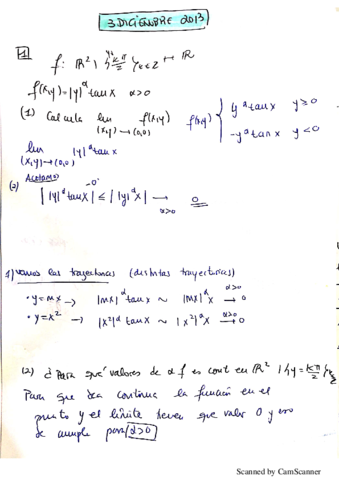 3 DICIEMBRE 2013
1
f: ℝ² \ {y = kπ/2}k∈Z ↦ ℝ
f(x,y) = |y|^α tan x   α>0
(1) Calcula lim (x,y)→(0,0) f(x,y)   f(x,y) { y^α tan x   y≥0
-y^α tan x   y<0
lim (x,y)→(0,0) |y|^α tan x
(2) Acotamos
| |y|^α tan x | ≤ | |y|^α x | → α>0   0
1) vamos las trayectorias (distintas trayectorias)
• y=mx → |mx|^α tan x ~ |mx|^α x →^{α>0} 0
• y=x² → |x²|^α tan x ~ |x²|^α x →^{α>0} 0
(2) ¿Para qué valores de α f es cont en ℝ² \ {y = kπ/2}k
Para que sea continua la función en el
punto y el límite tienen que valer 0 y eso
se cumple para α>0
Scanned by CamScanner